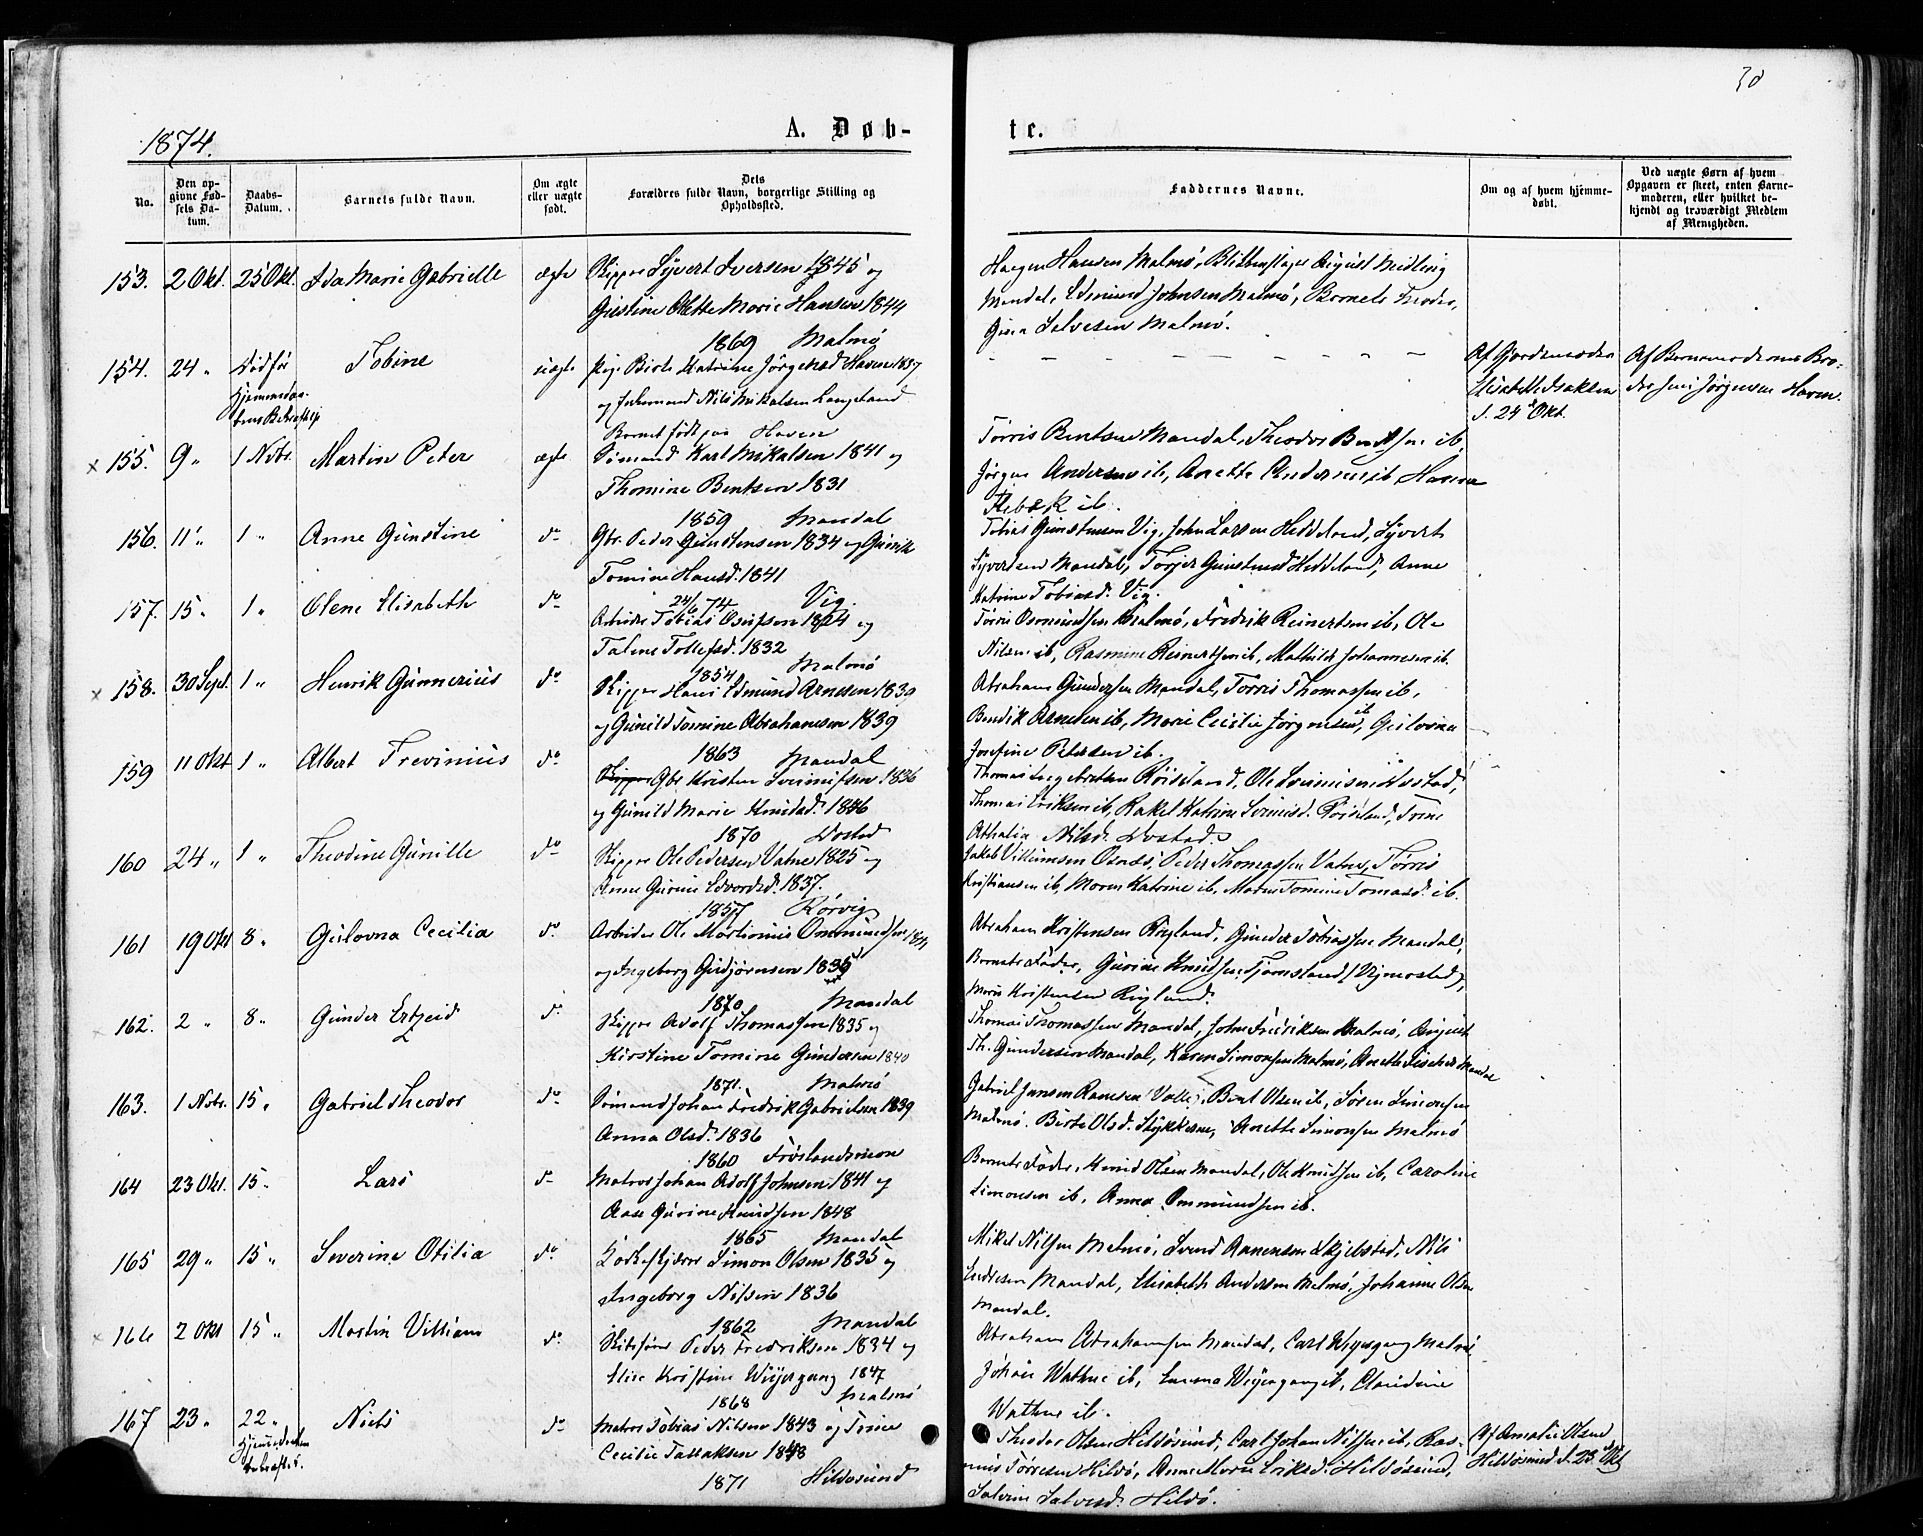 30
1874.
A. Døb-
te.
No.
Den op-
givne Fød-
sels Da-
tum.
Daabs-
Datum.
Barnets fulde Navn.
Om ægte
eller uægte
født.
Dets
Forældres fulde Navn, borgerlige Stilling og
Opholdssted.
Faddernes Navne.
Om og af hvem hjemme-
døbt.
Ved uægte Børn af hvem
Opgaven er skeet, enten Barne-
moderen, eller hvilket be-
kjendt og troværdigt Medlem
af Menigheden.
153. 2 Okt. 25 Okt. Ida Marie Gabrielle ægte Skipper Syvert Iversen 1845 og
Gustine Olette Marie Hansen 1844
1869 Malmö
Hansen Malmö, August
Mandal, Edmund Johnsen Malmö, Barnets Fader,
Gina Salvesen Malmö.
154. 24 " Tobine uægte Pige Birte Katrine Jörgensd. Haven 1837
og Nils Mikalsen Langeland
Barnet födt paa Haven
Af Gjordemoder
Elisabeth Isaksen
d. 24de Okt.
Af Barnemoderens Bro-
der Jens Jörgensen Haven.
155. 9 " 1 Nvbr. Martin Peter ægte Sömand Karl Mikalsen 1841 og
Thomine Bentsen 1831
1859 Mandal
Törris Bentsen Mandal, Theodor Bentsen ib,
Jörgen Andersen ib, Anette Andersen ib, Hanna
ib.
156. 11 " 1 " Anne Gunstine do Gbr. Peder Gunstensen 1834 og Gunild
Tomine Hansd. 1841
24/6 74 Vig.
Tobias Gunstensen Vig, John Larsen Hedland, Syvert
Syvertsen Mandal, Torjer Gunstens. Hedland, Anne
Katrine Tobiasd. Vig.
157. 15 " 1 " Olene Elisabeth do Arbeider Tobias Osufsen 1824 og
Talene Tollefsd. 1832
1854 Malmö
Törris Osmundsen Malmö, Fredrik Reinertsen ib, Ole
Nilsen ib, Rasmine Reinertsen ib, Mathilde Johannesen ib.
158. 30 Sept. 1 " Henrik Gunnerius do Skipper Hans Edmund Arnesen 1839
og Gunild Tomine Abrahamsen 1839
1863 Mandal
Abraham Gundersen Mandal, Törris Thomassen ib,
Bendik Arnesen ib, Marie Cecilie Jörgensen ib, Gulovna
Josefine Petersen ib.
159 11 Okt 1 " Albert Trevinius do Skipper Gbr. Kristen Sveinisen 1836
og Gunild Marie Knudsd. 1846
1870 Aostad
Thomas Röisland, Ole Aostad,
Thomas Eriksen ib, Rakel Katrine Röisland, Trine
Athalia Nilsd. Aostad.
160 24 " 1 " Theodine Gunille do Skipper Ole Pedersen Vatne 1825 og
Anne Gurine Edvardsd. 1837.
1857 Rörvig
Jakob Villumsen Osnes, Peder Thomassen Vatne, Törris
Kristiansen ib, Maren Katrine ib, Maren Tomine Tomasd. ib.
161 19 Okt 8 " Gulovna Cecilia do Arbeider Ole Martinius Ommundsen 1841
og Ingeborg Gudjörnsen 1835
1870 Mandal
Abraham Kristensen Röyland, Gunder Tobiassen Mandal,
Barnets Fader, Gurine Knudsen Tjomsland,
Marie Kristensen Röyland.
162. 2 " 8 " Gunder Ertzeid do Skipper Adolf Thomassen 1835 og
Kirstine Tomine Gundersen 1840
1871. Malmö
Thomas Thomassen Mandal, John Fredriksen Malmö, August
Th. Gundersen Mandal, Karen Simonsen Malmö, Anette Fischer Mandal
163. 1 Nvbr. 15 " Gabriel Theodor do Sömand Johan Fredrik Gabrielsen 1839
Anna Olsd. 1836
1860 Fröslandsmoen
Gabriel Jansen Ramsen Valle, Bent Olsen ib, Sören Simonsen
Malmö, Birte Olsd. Stykkerne, Anette Simonsen Malmö
164 23 Okt. 15 " Lars do Matros Johan Adolf Johnsen 1841 og
Aase Gurine Knudsen 1848
1865 Mandal
Barnets Fader, Knud Olsen Mandal, Ole Knudsen ib, Caroline
Simonsen ib, Anna Ommundsen ib.
165 29 " 15 " Severine Otilia do Simon Olsen 1835 og
Ingeborg Nilsen 1836
1862 Mandal
Mikel Nilsen Malmö, Svend Skjebstad, Nils
Endresen Mandal, Elisabeth Andersen Malmö, Johanne Olsen
Mandal.
166 2 Okt 15 " Martin Villiam do Peder Fredriksen 1834 og
Elise Kristine Weyergang 1847
1868 Malmö
Abraham Abrahamsen Mandal, Carl Weyergang Malmö
Johan Wathne ib, Emma Weyergang ib, Claudine
Wathne ib.
167 23 " 22 " Niels do Matros Tobias Nilsen 1843 og Trine
Cecilie Tallaksen 1848
1871 Hildosund
Theodor Olsen Hildösund, Carl Johan Nilsen ib, Ras-
mus Törresen Hildö, Anne Marie Eriksd. Hildösund,
Salvine Salvesd. Hildö.
Af Amalie Olsen
Hildösund d. 23de Okt